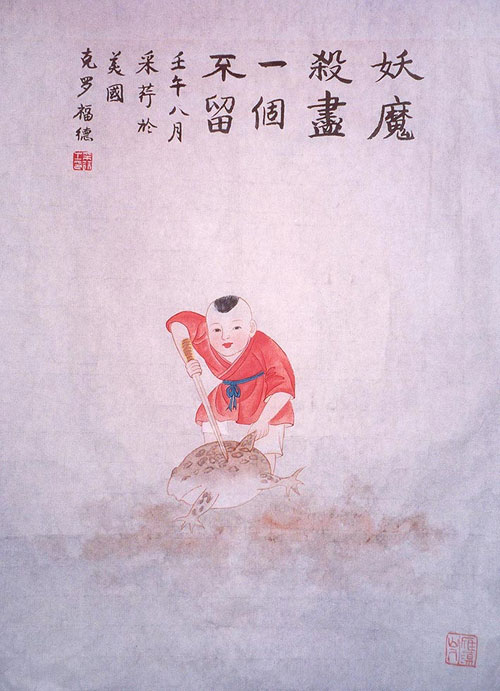 妖魔
殺盡
一個
不留
壬午八月
采荇於
美國
克罗福德